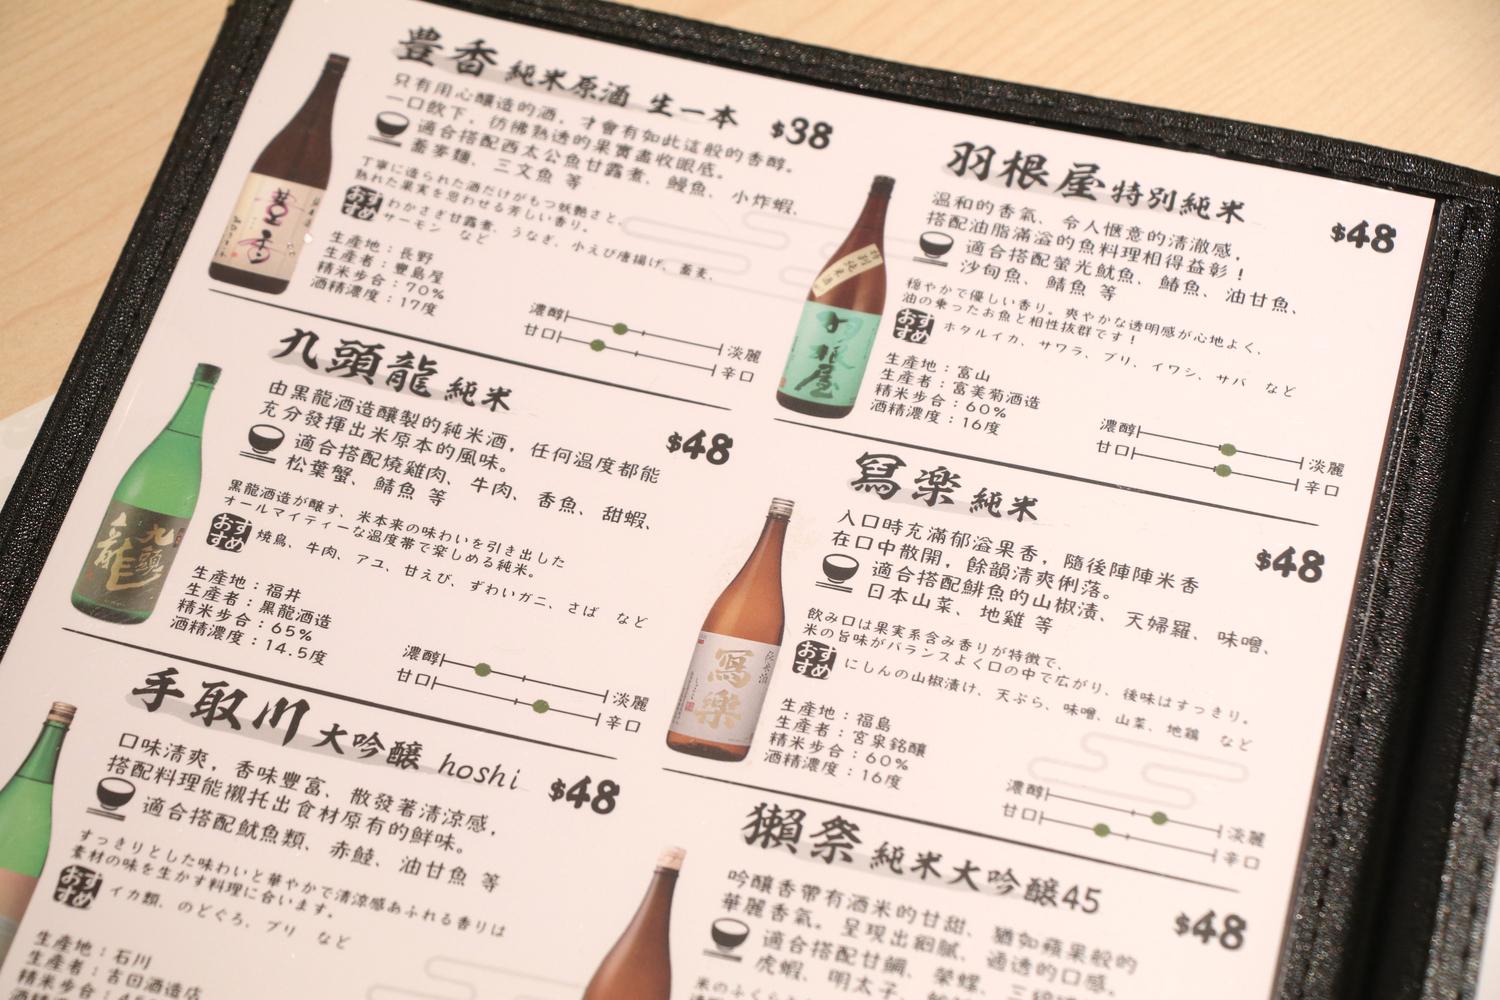 豊香 純米原酒 生一本 $38
只有用心釀造的酒，才會有如此這般的香醇。
一口飲下，彷彿熟透的果實盡收眼底。
適合搭配西太公魚甘露煮、鰻魚、小炸蝦、
蕎麥麵、三文魚 等
丁寧に造られた酒だけがもつ妖艶さと、
熟れた果実を思わせる芳しい香り。
おすすめ わかさぎ甘露煮、うなぎ、小えび唐揚げ、蕎麦、
サーモン など
生産地：長野
生產者：豊島屋
精米步合：70%
酒精濃度：17度
濃醇 淡麗
甘口 辛口
九頭龍 純米 $48
由黑龍酒造釀製的純米酒，任何溫度都能
充分發揮出米原本的風味。
適合搭配燒雞肉、牛肉、香魚、甜蝦、
松葉蟹、鯖魚 等
黒龍酒造が醸す、米本来の味わいを引き出した
オールマイティーな温度帯で楽しめる純米。
おすすめ 焼鳥、牛肉、アユ、甘えび、ずわいガニ、さば など
生產地：福井
生產者：黑龍酒造
精米步合：65%
酒精濃度：14.5度
濃醇 淡麗
甘口 辛口
手取川 大吟醸 hoshi $48
口味清爽，香味豐富、散發著清涼感，
搭配料理能襯托出食材原有的鮮味。
適合搭配魷魚類、赤鯥、油甘魚 等
すっきりとした味わいと華やかで清涼感あふれる香りは
素材の味を生かす料理に合います。
おすすめ イカ類、のどぐろ、ブリ など
生產地：石川
生產者：吉田酒造店
羽根屋 特別純米 $48
溫和的香氣、令人愜意的清澈感，
搭配油脂滿溢的魚料理相得益彰！
適合搭配螢光魷魚、鰆魚、油甘魚、
沙甸魚、鯖魚 等
穏やかで優しい香り。爽やかな透明感が心地よく、
油の乗ったお魚と相性抜群です！
おすすめ ホタルイカ、サワラ、ブリ、イワシ、サバ など
生產地：富山
生產者：富美菊酒造
精米步合：60%
酒精濃度：16度
濃醇 淡麗
甘口 辛口
寫樂 純米 $48
入口時充滿郁溢果香，隨後陣陣米香
在口中散開，餘韻清爽俐落。
適合搭配鯡魚的山椒漬、天婦羅、味噌、
日本山菜、地雞 等
飲み口は果実系含み香りが特徴で、
米の旨味がバランスよく口の中で広がり、後味はすっきり。
おすすめ にしんの山椒漬け、天ぷら、味噌、山菜、地鶏 など
生產地：福島
生產者：宮泉銘釀
精米步合：60%
酒精濃度：16度
濃醇 淡麗
甘口 辛口
獺祭 純米大吟醸45 $48
吟釀香帶有酒米的甘甜、猶如蘋果般的
華麗香氣。呈現出細膩、通透的口感。
適合搭配甘鯛、榮螺、
虎蝦、明太子、